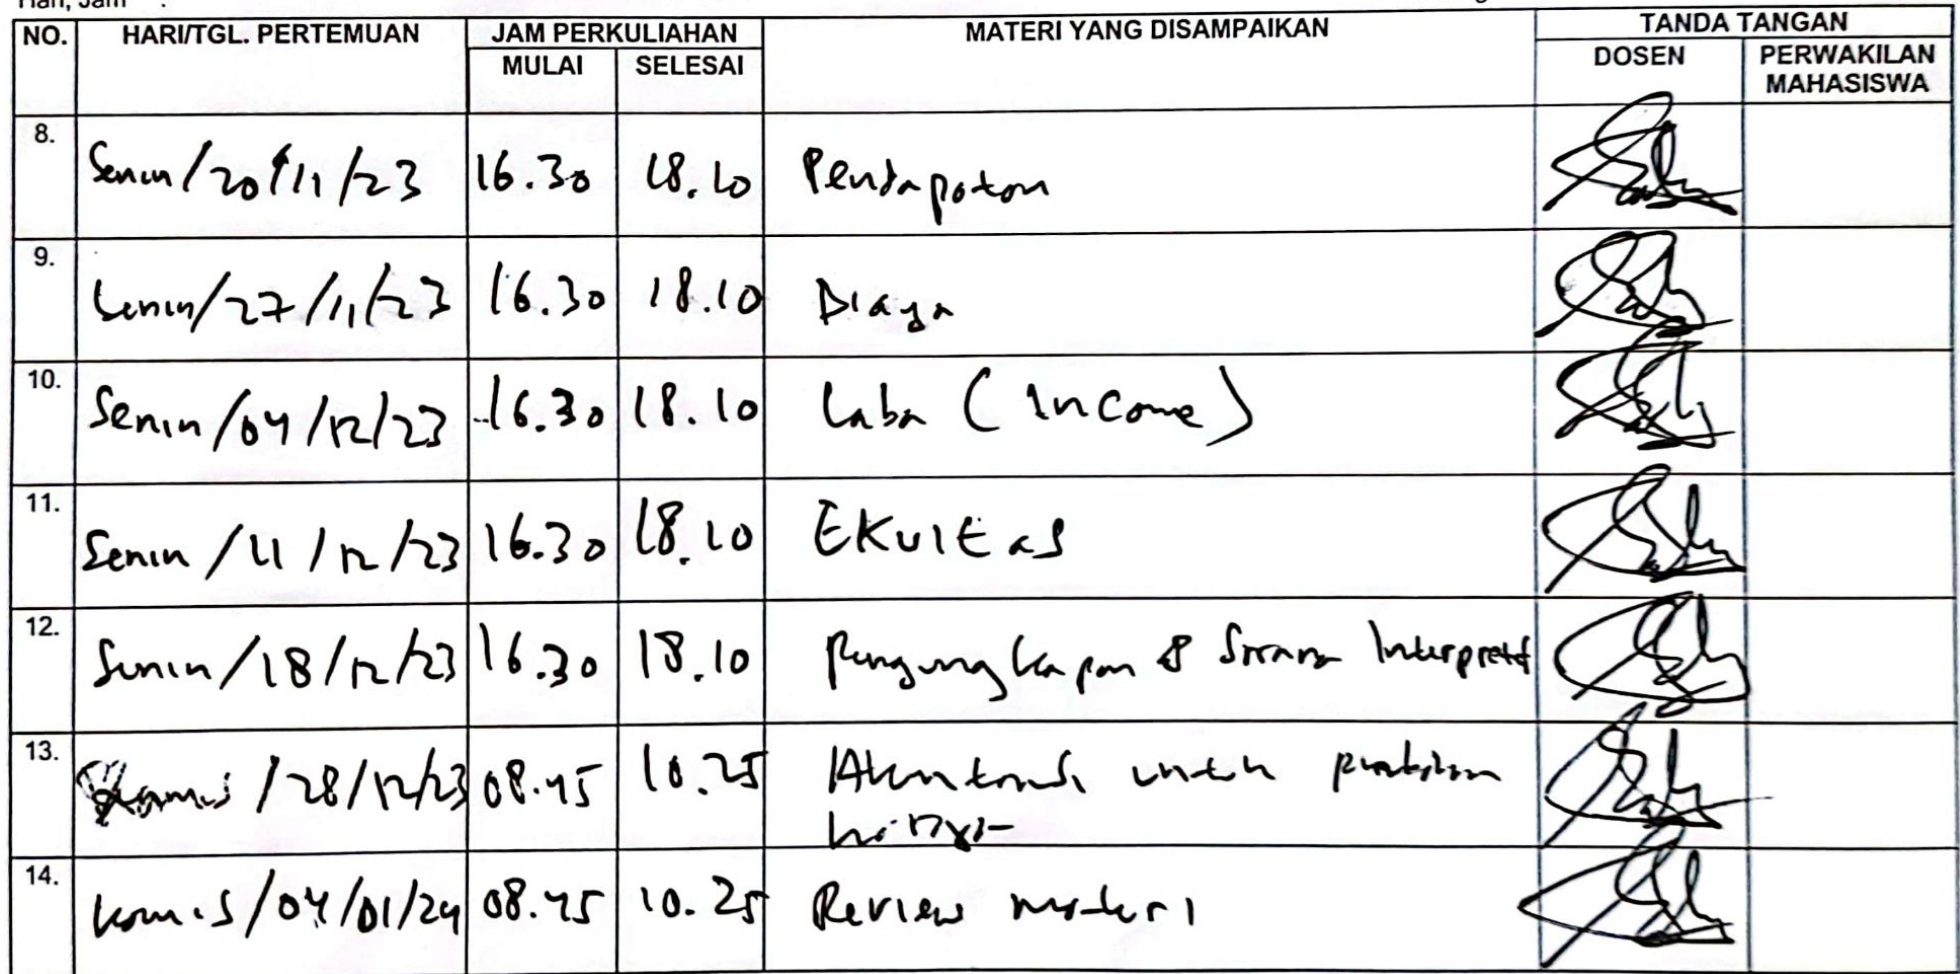 Hari, Jam :
NO. HARI/TGL. PERTEMUAN JAM PERKULIAHAN MATERI YANG DISAMPAIKAN TANDA TANGAN
MULAI SELESAI DOSEN PERWAKILAN MAHASISWA
8. Senin/20/11/23 16.30 18.10 Pendapatan
9. Senin/27/11/23 16.30 18.10 Biaya
10. Senin/04/12/23 16.30 18.10 Laba (Income)
11. Senin/11/12/23 16.30 18.10 Ekuitas
12. Senin/18/12/23 16.30 18.10 Pengungkapan & Sarana Interpretif
13. Kamis/28/12/23 08.45 10.25 Akuntansi untuk perubahan
harga
14. Kamis/04/01/24 08.45 10.25 Review materi